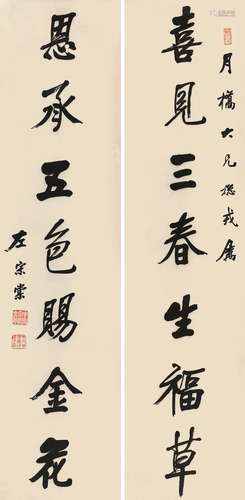 月樵大兄總戎属
喜見三春生福草
恩承五色賜金花
左宗棠